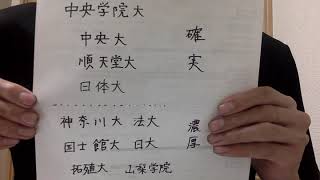 中央学院大
中央大
順天堂大
日体大
確実
神奈川大 法大
国士館大 日大
拓殖大 山梨学院
濃厚